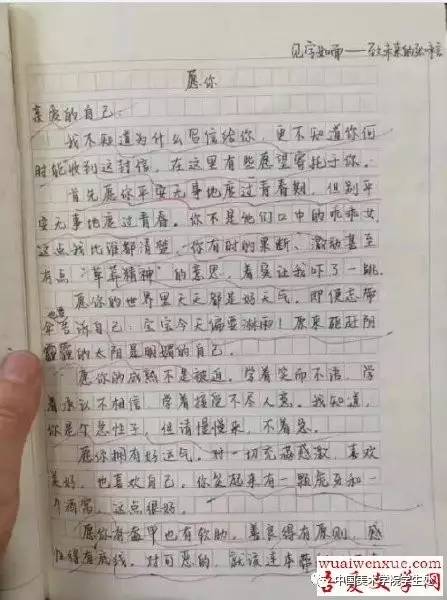 见字如面——致未来的张
愿你
亲爱的自己:
我不知道为什么写信给你,更不知道你何
时能收到这封信,在这里有些愿望寄托于你。
首先愿你平安无事地度过青春期,但别平
安无事地度过青春。你不是他们口中的乖乖女,
这点我比谁都清楚,你有时的果断、激动甚至
有点“草莽精神”的意思,着实让我吓了一跳。
愿你的世界里天天都是好天气,即便忘带
伞也要告诉自己:宝宝今天偏要淋雨!原来驱赶阴
霾的太阳是明媚的自己。
愿你的成熟不是被迫,学着笑而不语,学
着承认不相信,学着接受不尽人意。我知道,
你是个急性子,但请慢慢来,不着急。
愿你拥有好运气,对一切充满感激,喜欢
美好,也喜欢自己,你笑起来有一颗虎牙和一
个酒窝,这点很好。
愿你有盔甲也有软肋,善良得有原则,感
性得有底线,对可恶的,就该连本带
wuaiwenxue.com
吾爱文学网
中国美术学院学生